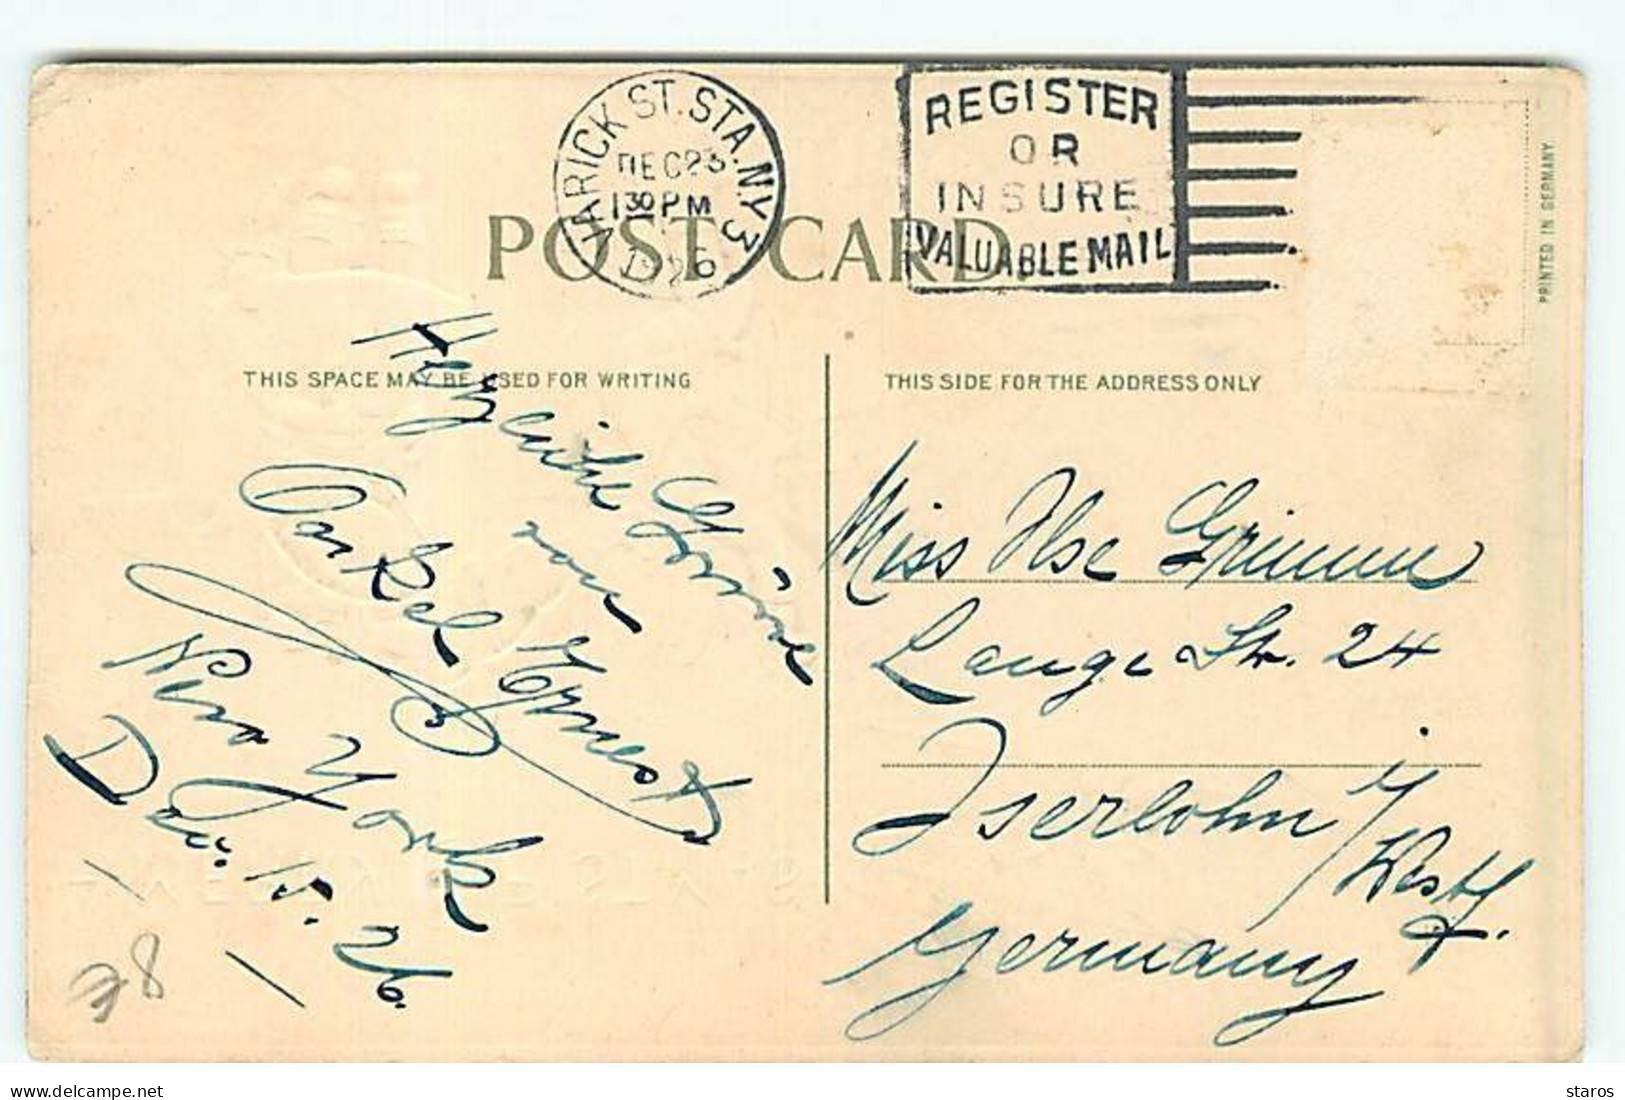 VARICK ST. STA. N.Y. 3
DEC 23
130 PM
1926
REGISTER
OR
INSURE
VALUABLE MAIL
POST CARD
PRINTED IN GERMANY
THIS SPACE MAY BE USED FOR WRITING
THIS SIDE FOR THE ADDRESS ONLY
Herzliche Grüsse
von
Onkel Ernest
New York
Dec. 15. 26.
Miss Ilse Grimm
Lange Str. 24
Iserlohn i/
Westf.
Germany
8
staros
delcampe.net